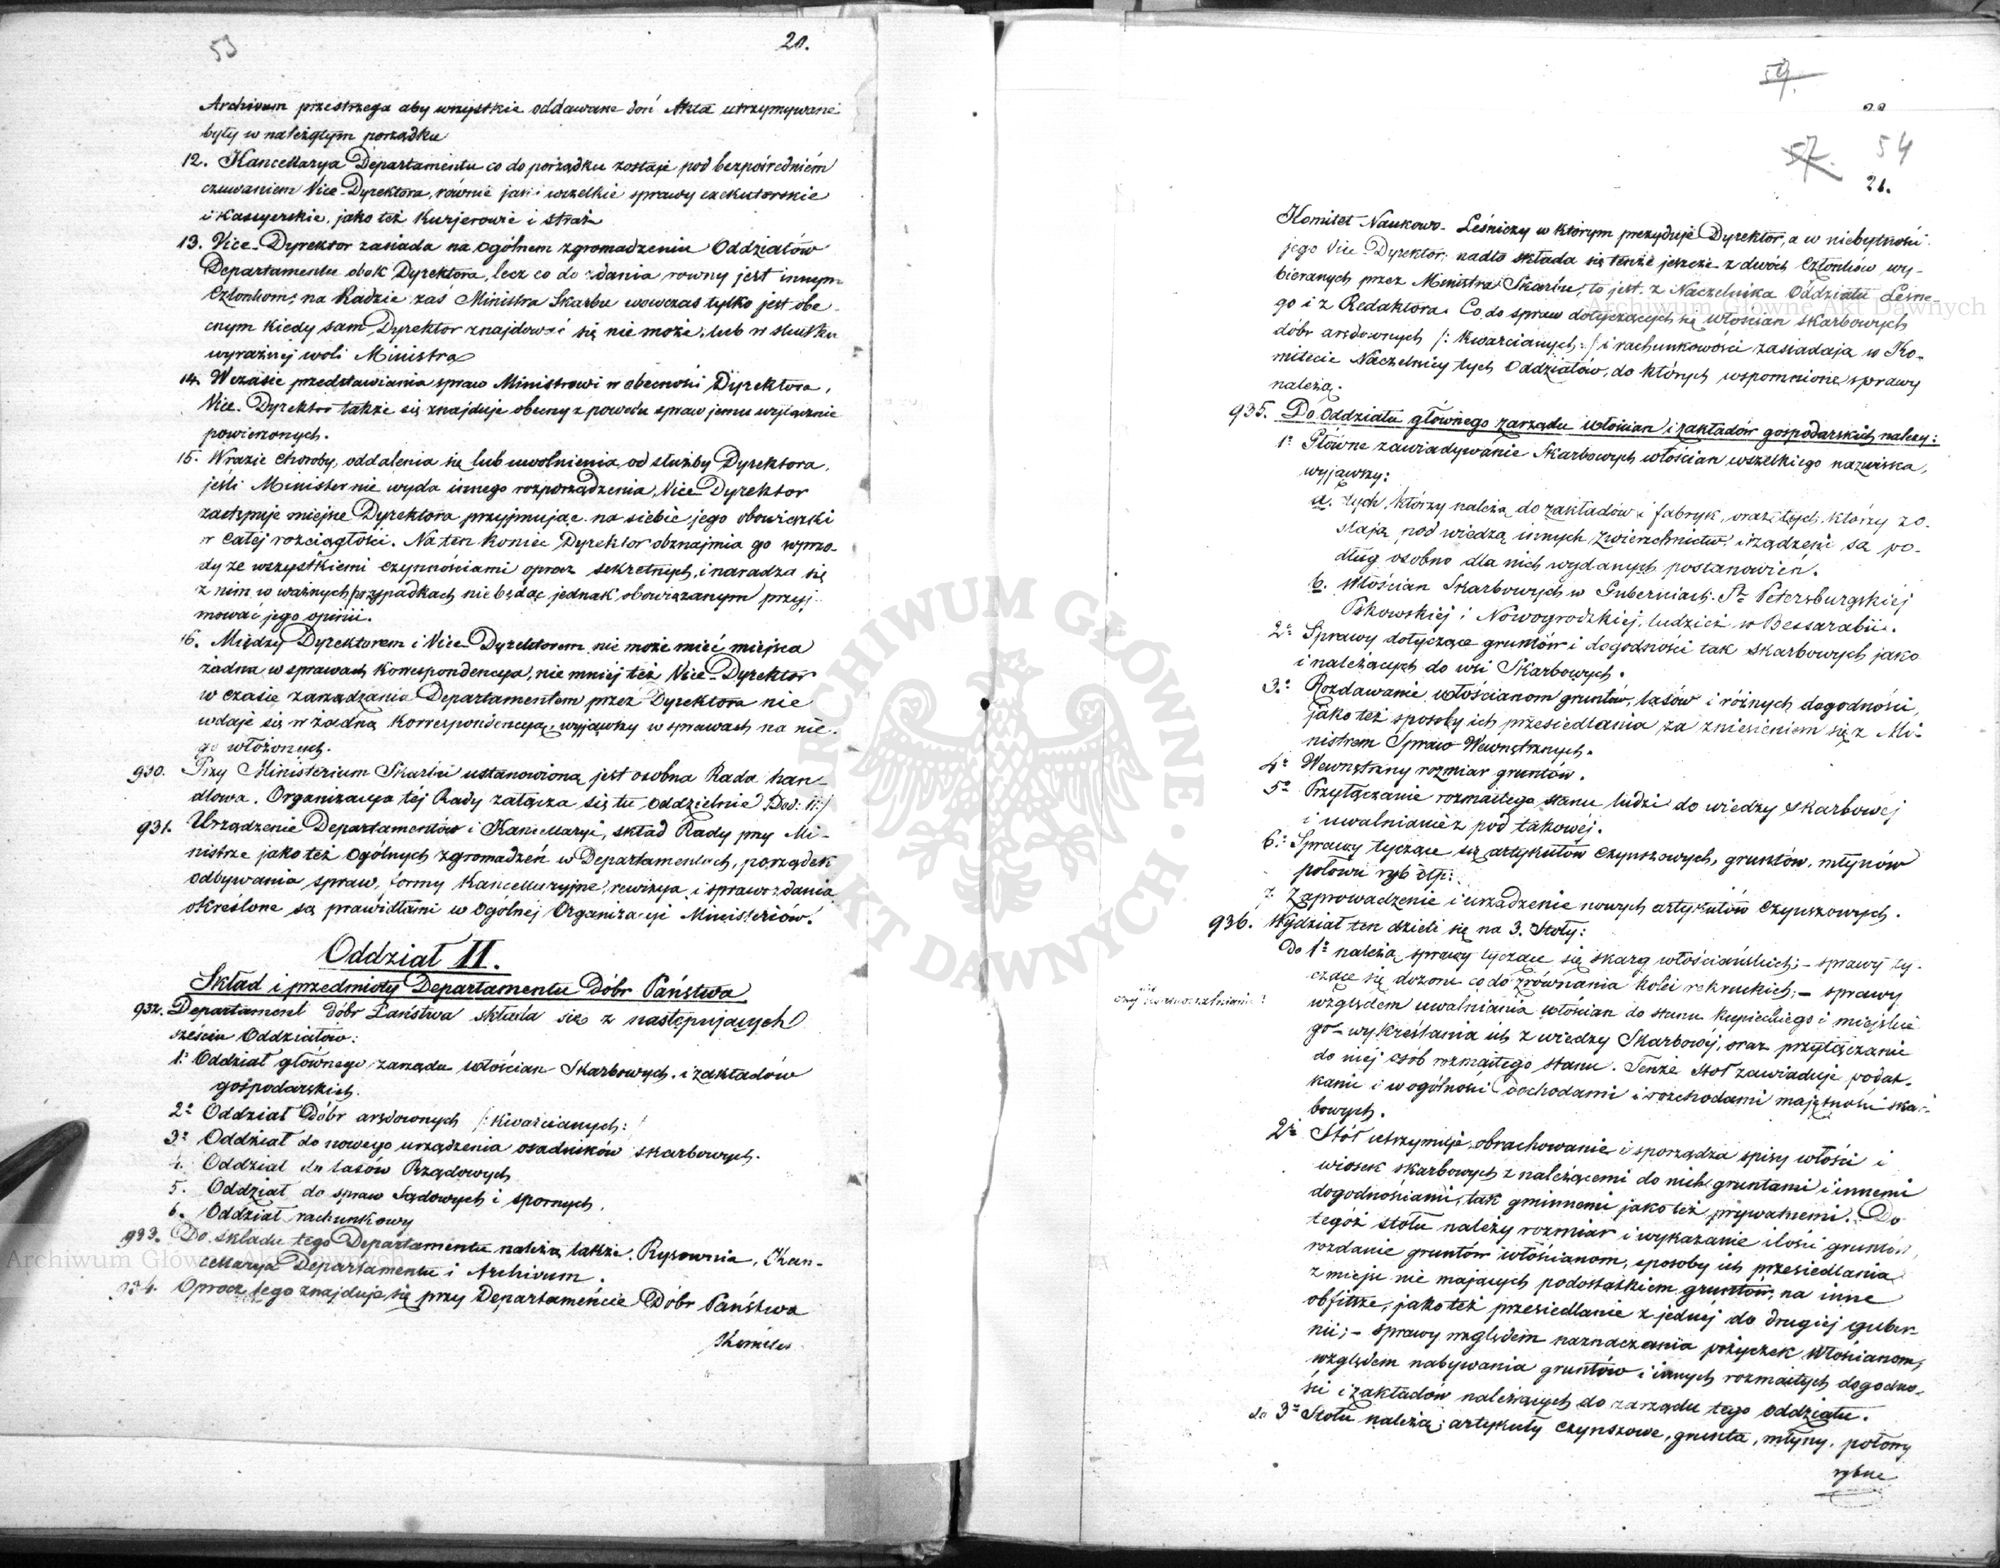 53
20.
Archivum przestrzega aby wszystkie oddawane doń Akta utrzymywane
były w należytym porządku
12. Kancellarya Departamentu co do porządku zostaje pod bezpośredniém
czuwaniem Vice-Dyrektora, równie jak i wszelkie sprawy exekutorskie
i Kassyerskie, jako też Kurjerowie i straż
13. Vice-Dyrektor zasiada na ogólnem zgromadzeniu Oddziałów
Departamentu obok Dyrektora, lecz co do zdania rowny jest innym
Członkom; na Radzie zaś Ministra Skarbu wowczas tylko jest obe-
cnym kiedy sam Dyrektor znajdować się nie może, lub w skutku
wyraźnej woli Ministra
14. W czasie przedstawiania spraw Ministrowi w obecności Dyrektora,
Vice-Dyrektor także się znajduje obecny z powodu spraw jemu wyłącznie
powierzonych.
15. W razie choroby, oddalenia się lub uwolnienia od służby Dyrektora,
jeśli Minister nie wyda innego rozporządzenia, Vice-Dyrektor
zastępuje miejsce Dyrektora przyjmując na siebie jego obowiązki
w całej rozciągłości. Na ten koniec Dyrektor obznajmia go wprzo-
dy ze wszystkiemi czynnościami oprócz sekretnych, i naradza się
z nim w ważnych przypadkach nie będąc jednak obowiązanym przyj-
mować jego opinii.
16. Między Dyrektorem i Vice-Dyrektorem nie może mieć miejsca
żadna w sprawach korrespondencya, nie mniej też Vice-Dyrektor
w czasie zarządzania Departamentem przez Dyrektora nie
wdaje się w żadną korrespondencyą, wyjąwszy w sprawach na nie-
go włożonych.
930. Przy Ministerium Skarbu ustanowioną jest osobna Rada han-
dlowa. Organizacya téj Rady załącza się tu oddzielnie /Dod: II:/
931. Urządzenie Departamentów i Kancellaryi, skład Rady przy Mi-
nistrze jako też ogólnych zgromadzeń w Departamentach, porządek
odbywania spraw, formy Kancellaryjne, rewizya i sprawozdania
określone są prawidłami w Ogólnej Organizacyi Ministeriów.
Oddział II.
Skład i przedmioty Departamentu Dóbr Państwa
932. Departament dóbr Państwa składa się z następujących
sześciu Oddziałów:
1º Oddział głównego zarządu włościan Skarbowych i zakładów
gospodarskich.
2º Oddział Dóbr arędownych /: Kwarcianych:/
3º Oddział do nowego urządzenia osadników skarbowych.
4. Oddział do lasów Rządowych
5. Oddział do spraw Sądowych i spornych.
6. Oddział rachunkowy
933. Do składu tego Departamentu należą także, Rysownia, Kan-
cellarya Departamentu i Archivum.
934. Oprocz tego znajduje się przy Departamencie Dóbr Państwa
Komitet
59.
57.
54
21.
Komitet Naukowo-Leśniczy w ktorym prezyduje Dyrektor, a w niebytności
jego Vice-Dyrektor; nadto składa się tenże jeszcze z dwóch Członków wy-
bieranych przez Ministra Skarbu, to jest: z Naczelnika Oddziału Leśne-
go i z Redaktora. Co do spraw dotyczących się włościan skarbowych
dóbr arędownych /: Kwarcianych:/ i rachunkowości zasiadają w Ko-
mitecie Naczelnicy tych Oddziałów, do których wspomnione sprawy
należą.
935. Do Oddziału głównego zarządu włościan i zakładów gospodarskich należy:
1º Główne zawiadywanie Skarbowych włościan wszelkiego nazwiska,
wyjąwszy:
a. tych, którzy należą do zakładów i fabryk, oraz tych, którzy zo-
stają pod wiedzą innych zwierzchnictw, i rządzeni są po-
dług osobno dla nich wydanych postanowień.
b. Włościan Skarbowych w Guberniach: St. Petersburgskiej
Pskowskiej i Nowogrodzkiej, tudzież w Bessarabii.
2º Sprawy dotyczące gruntów i dogodności tak skarbowych jako
i należących do wsi Skarbowych.
3º Rozdawanie włościanom gruntów, lasów i różnych dogodności,
jako też sposoby ich przesiedlania za zniesieniem się z Mi-
nistrem Spraw Wewnętrznych.
4º Wewnętrzny rozmiar gruntów.
5º Przyłączanie rozmaitego stanu ludzi do wiedzy skarbowéj
i uwalnianie z pod takowéj.
6º Sprawy tyczące się artykułów czynszowych, gruntów, młynów
połowu ryb etc:
7. Zaprowadzenie i urządzenie nowych artykułów czynszowych.
936. Wydział ten dzieli się na 3. Stoły:
Do 1º należą sprawy tyczące się skarg włościańskich; – sprawy ty-
czące się dozoru co do zrównania kolei rekruckich; – sprawy
względem uwalniania włościan do stanu kupieckiego i miejskie-
go – wykreślania ich z wiedzy Skarbowéj, oraz przyłączanie
do niej osob rozmaitego stanu. Tenże Stoł zawiaduje podat-
kami i w ogólności dochodami i rozchodami majętności skar-
bowych.
2º Stół utrzymuje obrachowanie i sporządza spisy włości i
wiosek skarbowych z należącemi do nich gruntami i innemi
dogodnościami, tak gminnemi jako też prywatnemi. Do
tegoż stołu należy rozmiar i wykazanie ilości gruntów,
rozdanie gruntów włościanom, sposoby ich przesiedlania
z miejsc nie mających podostatkiem gruntów, na inne
obfitsze, jako też przesiedlanie z jednej do drugiej guber-
nii; – sprawy względem naznaczania pożyczek włościanom,
względem nabywania gruntów i innych rozmaitych dogodno-
ści i zakładów należących do zarządu tego Oddziału.
do 3º Stołu należą; artykuły czynszowe, grunta, młyny, połowy
rybne
ARCHIWUM GŁÓWNE AKT DAWNYCH
Archiwum Główne Akt Dawnych
Archiwum Główne Akt Dawnych